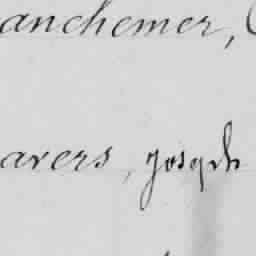 anchemer,
avers, Joseph